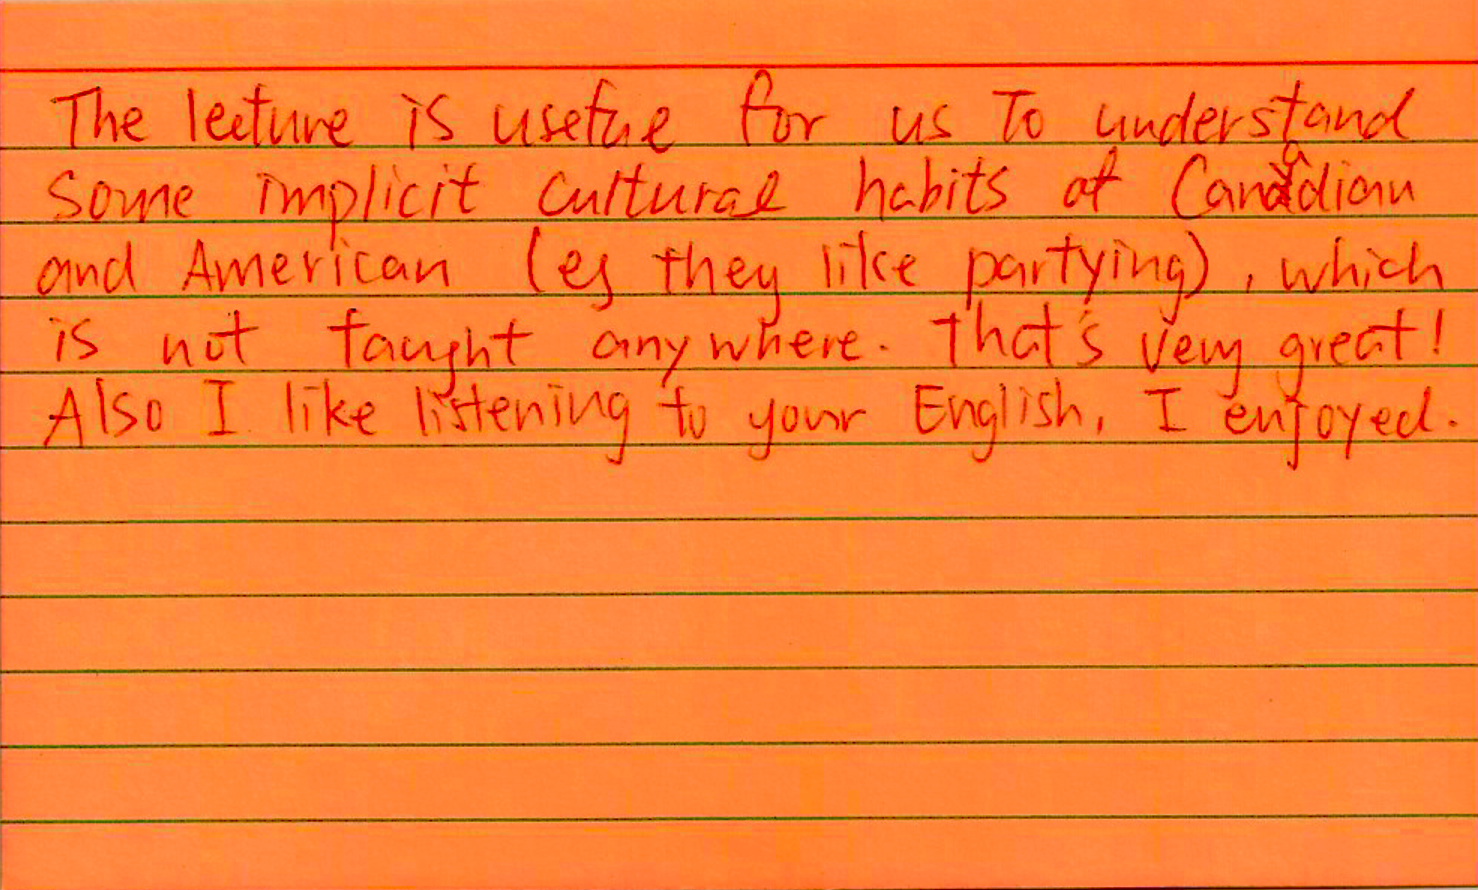 The lecture is useful for us to understand
some implicit cultural habits of Canadian
and American (eg they like partying), which
is not taught anywhere. That's very great!
Also I like listening to your English, I enjoyed.